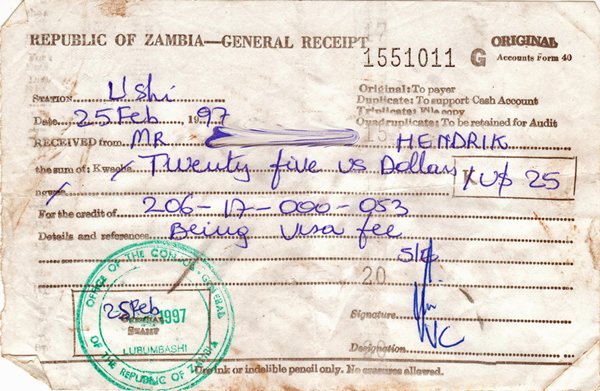 REPUBLIC OF ZAMBIA—GENERAL RECEIPT 1551011 G ORIGINAL
Accounts Form 40
Original: To payer
Duplicate: To support Cash Account
Triplicate: File copy
Quadruplicate: To be retained for Audit
STATION L'Shi
Date 25 Feb 1997
RECEIVED from MR HENDRIK
the sum of: Kwacha Twenty five us Dollars K U$ 25
ngwee
For the credit of 206-17-000-053
Details and references Being visa fee
20
Signature
VC
Designation
OFFICE OF THE CONSUL-GENERAL
25 Feb 1997
OFFICIAL STAMP
LUBUMBASHI
OF THE REPUBLIC OF ZAMBIA
Use ink or indelible pencil only. No erasures allowed.